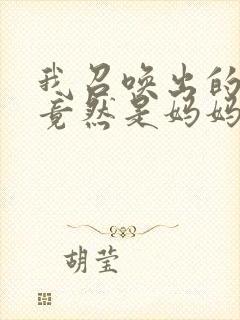 我召唤出的
竟然是妈妈
胡莹